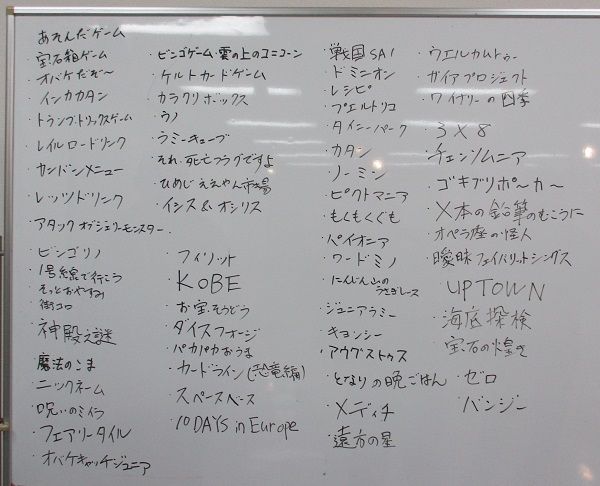 あそんだゲーム
・宝石箱ゲーム
・オバケだぞ〜
・インカカタン
・トランプ、トリックスゲーム
・レイルロードリンク
・カンバンメニュー
・レッツドリンク
・アタックオブジェリーモンスター
・ビンゴリノ
・1号線で行こう
・そっとおやすみ
・街コロ
・神殿之謎
・魔法のこま
・ニックネーム
・呪いのミイラ
・フェアリータイル
・オバケキャッチジュニア
・ビンゴゲーム・雲の上のユニコーン
・ケルトカードゲーム
・カラクリボックス
・ウノ
・ラミーキューブ
・それ、死亡フラグですよ
・ひめじええやん市場
・イシス&オシリス
・フィリット
・KOBE
・お宝、そうどう
・ダイスフォージ
・パカパカおうま
・カードライン(恐竜編)
・スペースベース
・10 DAYS in Europe
・戦国SAI
・ドミニオン
・レシピ
・プエルトリコ
・タイニーパーク
・カタン
・ノーミン
・ピクトマニア
・もくもくぐも
・パイオニア
・ワードミノ
・にんじん山のうさぎレース
・ジュニアラミー
・キョンシー
・アウグストゥス
・となりの晩ごはん
・メディチ
・遠方の星
・ウエルカムトゥー
・ガイアプロジェクト
・ワイナリーの四季
・3×8
・チェンソムニア
・ゴキブリポーカー
・X本の鉛筆のむこうに
・オペラ座の怪人
・曖昧フェイバリットシングス
・UPTOWN
・海底探検
・宝石の煌き
・ゼロ
・バンジー